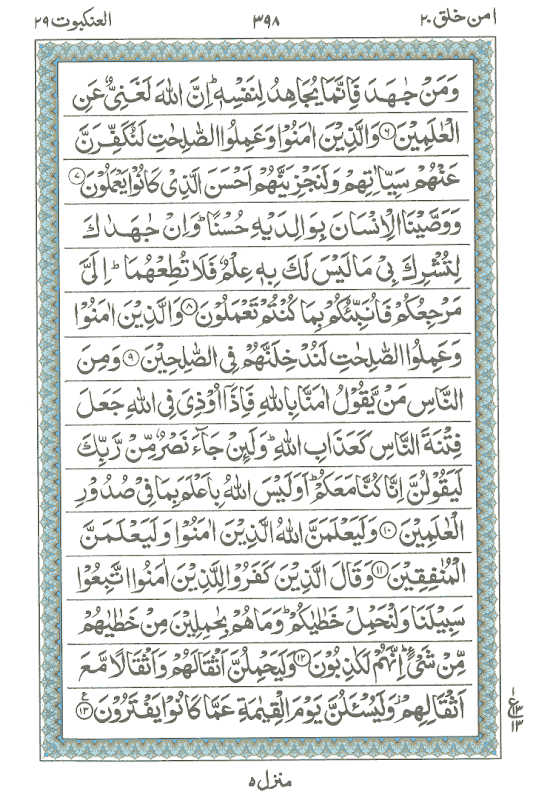 امن خلق ٢٠ ٣٩٨ العنكبوت ٢٩
وَمَنْ جٰهَدَ فَاِنَّمَا يُجَاهِدُ لِنَفْسِهٖ ؕ اِنَّ اللّٰهَ لَغَنِىٌّ عَنِ
الْعٰلَمِيْنَ ۝٦ وَالَّذِيْنَ اٰمَنُوْا وَعَمِلُوا الصّٰلِحٰتِ لَنُكَفِّرَنَّ
عَنْهُمْ سَيِّاٰتِهِمْ وَلَنَجْزِيَنَّهُمْ اَحْسَنَ الَّذِىْ كَانُوْا يَعْمَلُوْنَ ۝٧
وَوَصَّيْنَا الْاِنْسَانَ بِوَالِدَيْهِ حُسْنًا ؕ وَاِنْ جٰهَدٰكَ
لِتُشْرِكَ بِىْ مَا لَيْسَ لَكَ بِهٖ عِلْمٌ فَلَا تُطِعْهُمَا ؕ اِلَىَّ
مَرْجِعُكُمْ فَاُنَبِّئُكُمْ بِمَا كُنْتُمْ تَعْمَلُوْنَ ۝٨ وَالَّذِيْنَ اٰمَنُوْا
وَعَمِلُوا الصّٰلِحٰتِ لَنُدْخِلَنَّهُمْ فِى الصّٰلِحِيْنَ ۝٩ وَمِنَ
النَّاسِ مَنْ يَّقُوْلُ اٰمَنَّا بِاللّٰهِ فَاِذَاۤ اُوْذِىَ فِى اللّٰهِ جَعَلَ
فِتْنَةَ النَّاسِ كَعَذَابِ اللّٰهِ ؕ وَلَئِنْ جَآءَ نَصْرٌ مِّنْ رَّبِّكَ
لَيَقُوْلُنَّ اِنَّا كُنَّا مَعَكُمْ ؕ اَوَلَيْسَ اللّٰهُ بِاَعْلَمَ بِمَا فِىْ صُدُوْرِ
الْعٰلَمِيْنَ ۝١٠ وَلَيَعْلَمَنَّ اللّٰهُ الَّذِيْنَ اٰمَنُوْا وَلَيَعْلَمَنَّ
الْمُنٰفِقِيْنَ ۝١١ وَقَالَ الَّذِيْنَ كَفَرُوْا لِلَّذِيْنَ اٰمَنُوا اتَّبِعُوْا
سَبِيْلَنَا وَلْنَحْمِلْ خَطٰيٰكُمْ ؕ وَمَا هُمْ بِحٰمِلِيْنَ مِنْ خَطٰيٰهُمْ
مِّنْ شَىْءٍ ؕ اِنَّهُمْ لَكٰذِبُوْنَ ۝١٢ وَلَيَحْمِلُنَّ اَثْقَالَهُمْ وَاَثْقَالًا مَّعَ
اَثْقَالِهِمْ ؗ وَلَيُسْـَٔلُنَّ يَوْمَ الْقِيٰمَةِ عَمَّا كَانُوْا يَفْتَرُوْنَ ۝١٣
١
ع ١٣
١٣
منزل ٥